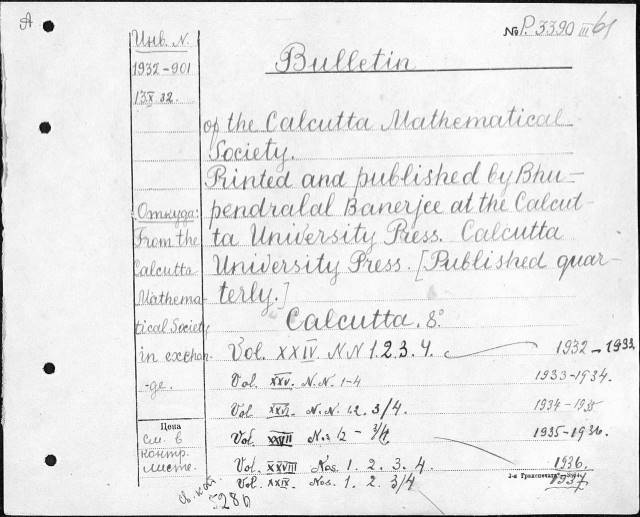 A
№ P. 3390 III/61
Инв. N.
1932-901
13 X 32.
Откуда:
From the
Calcutta
Mathema-
tical Society
in exchan-
-ge.
Цена
см. в
контр.
листе.
Bulletin
of the Calcutta Mathematical
Society.
Printed and published by Bhu-
pendralal Banerjee at the Calcut-
ta University Press. Calcutta
University Press. [Published quar-
terly.]
Calcutta. 8°
Vol. XXIV. N.N 1.2.3.4. 1932-1933
Vol. XXV. N.N. 1-4 1933-1934.
Vol. XXVI. N.N. 1.2. 3/4 1934-1935
Vol. XXVII Nos 1/2 - 3/4 1935-1936.
Vol. XXVIII Nos. 1. 2. 3. 4. 1936.
Vol. XXIX. Nos. 1. 2. 3/4 1937
3-я Транспечать